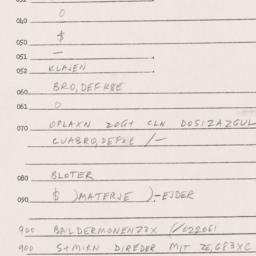 040 0
050 $
051 —
052 KLAJEN
060 BRO, DEFKBE
061 0
070 OPLAXN ZOGT CLN DOSIZAZGUL
CUABRO, DEFKE /—
080 BLOTER
090 $ )MATERJE )-EJDER
900 BALDERMONENZ3X (/022061
900 S+MIRN DIREDER MIT ZE, G83XC